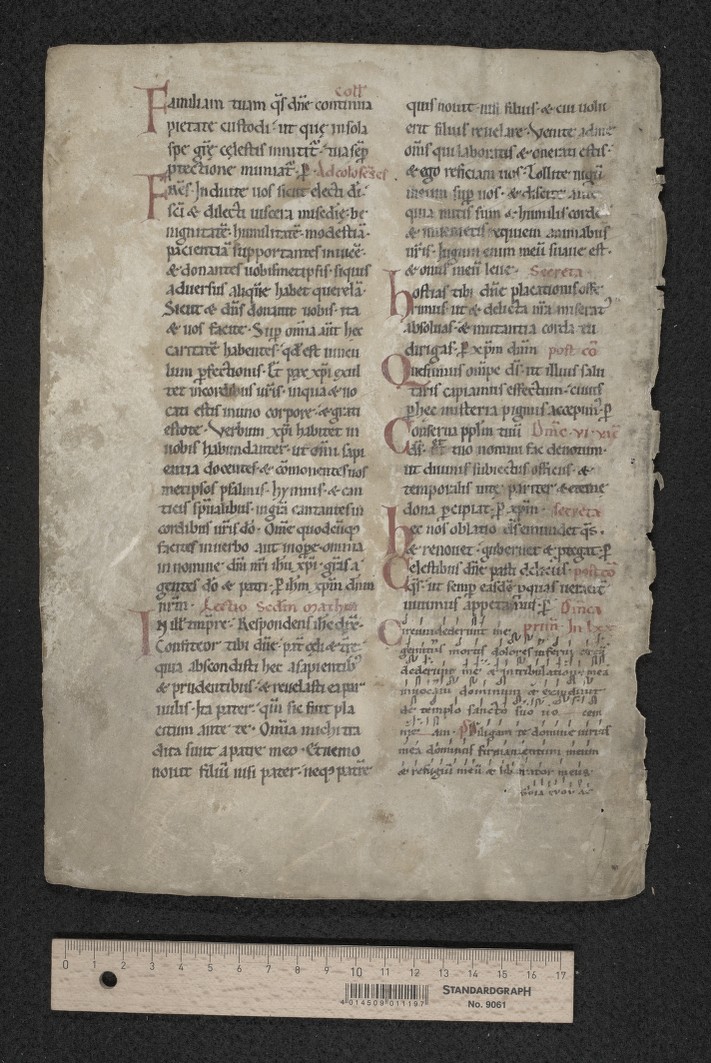 Coll
Familiam tuam qs dñe continua
pietate custodi ut que in sola
spe grę cęlestis innitit tua sep
ptectione muniat p Ad colosenses
Fres Induite uos sicut electi di
sci & dilecti uiscera misedie be
nignitatē humilitatē modestiā
pacientiā supportantes inuicē
& donantes uobismetipsis siquis
aduersus aliquē habet querelā
Sicut & dñs donauit uobis ita
& uos facite Sup omīa aūt hec
caritatē habentes qd est uincu
lum pfectionis Et pax xpi exul
tet in cordibus uris in qua & uo
cati estis in uno corpore & grati
estote Verbum xpi habitet in
uobis habundanter ut omi sapi
entia docentes & cōmonentes uos
metipsos psalmis hymnis & can
ticis spualibus in gra cantantes in
cordibus uris do Ome quodcūq
facitis in uerbo aut in ope omnia
in nomine dni nri ihu xpi gras a
gentes do & patri p ihm xpm dnm
nrm Lectio Sedm Mathm
In ill tempre Respondens ihc dix
Confiteor tibi dñe pat celi & tre
quia abscondisti hec a sapientib
& prudentibus & reuelasti ea par
uulis Ita pater qm sic fuit pla
citum ante te Omia michi tra
dita sunt a patre meo Et nemo
nouit filiū nisi pater neq patrē
quis nouit nisi filius & cui uolu
erit filius reuelare Venite ad me
oms qui laboratis & onerati estis
& ego reficiam uos Tollite iugū
meum sup uos & discite
quia mitis sum & humilis corde
& inuenietis requiem animabus
uris Iugum enim meū suaue est
& onus meū leue Secreta
hostias tibi dñe placationis offe
rimus ut & delicta nra miserat
absoluas & nutantia corda tu
dirigas p xpm dnm post cō
Quesumus omps ds ut illius salu
taris capiamus effectum cuius
p hec misteria pignus accepim p
Conserua pplm tuū
ds & tuo nomini fac deuotum
ut diuinis subiectus officiis &
temporalia uirtę pariter & eterne
dona pcipiat p xpm secreta
hec nos oblatio ds emundet qs
& renouet gubernet & ptegat p
Celestibus dñe pasti deliciis post cō
qs ut semp eadē p quas ueracit
uiuimus appetamus p Dmca
Circumdederunt me prim In lxx
gemitus mortis dolores inferni circū
dederunt me & in tribulatione mea
inuocaui dominum & exaudiuit
de templo sancto suo uo cem
me am Ps Diligam te domine uirtus
mea dominus firmamentum meum
& refugiū meū & liberator meus
0 1 2 3 4 5 6 7 8 9 10 11 12 13 14 15 16 17
4 014509 011197
STANDARDGRAPH
No. 9061